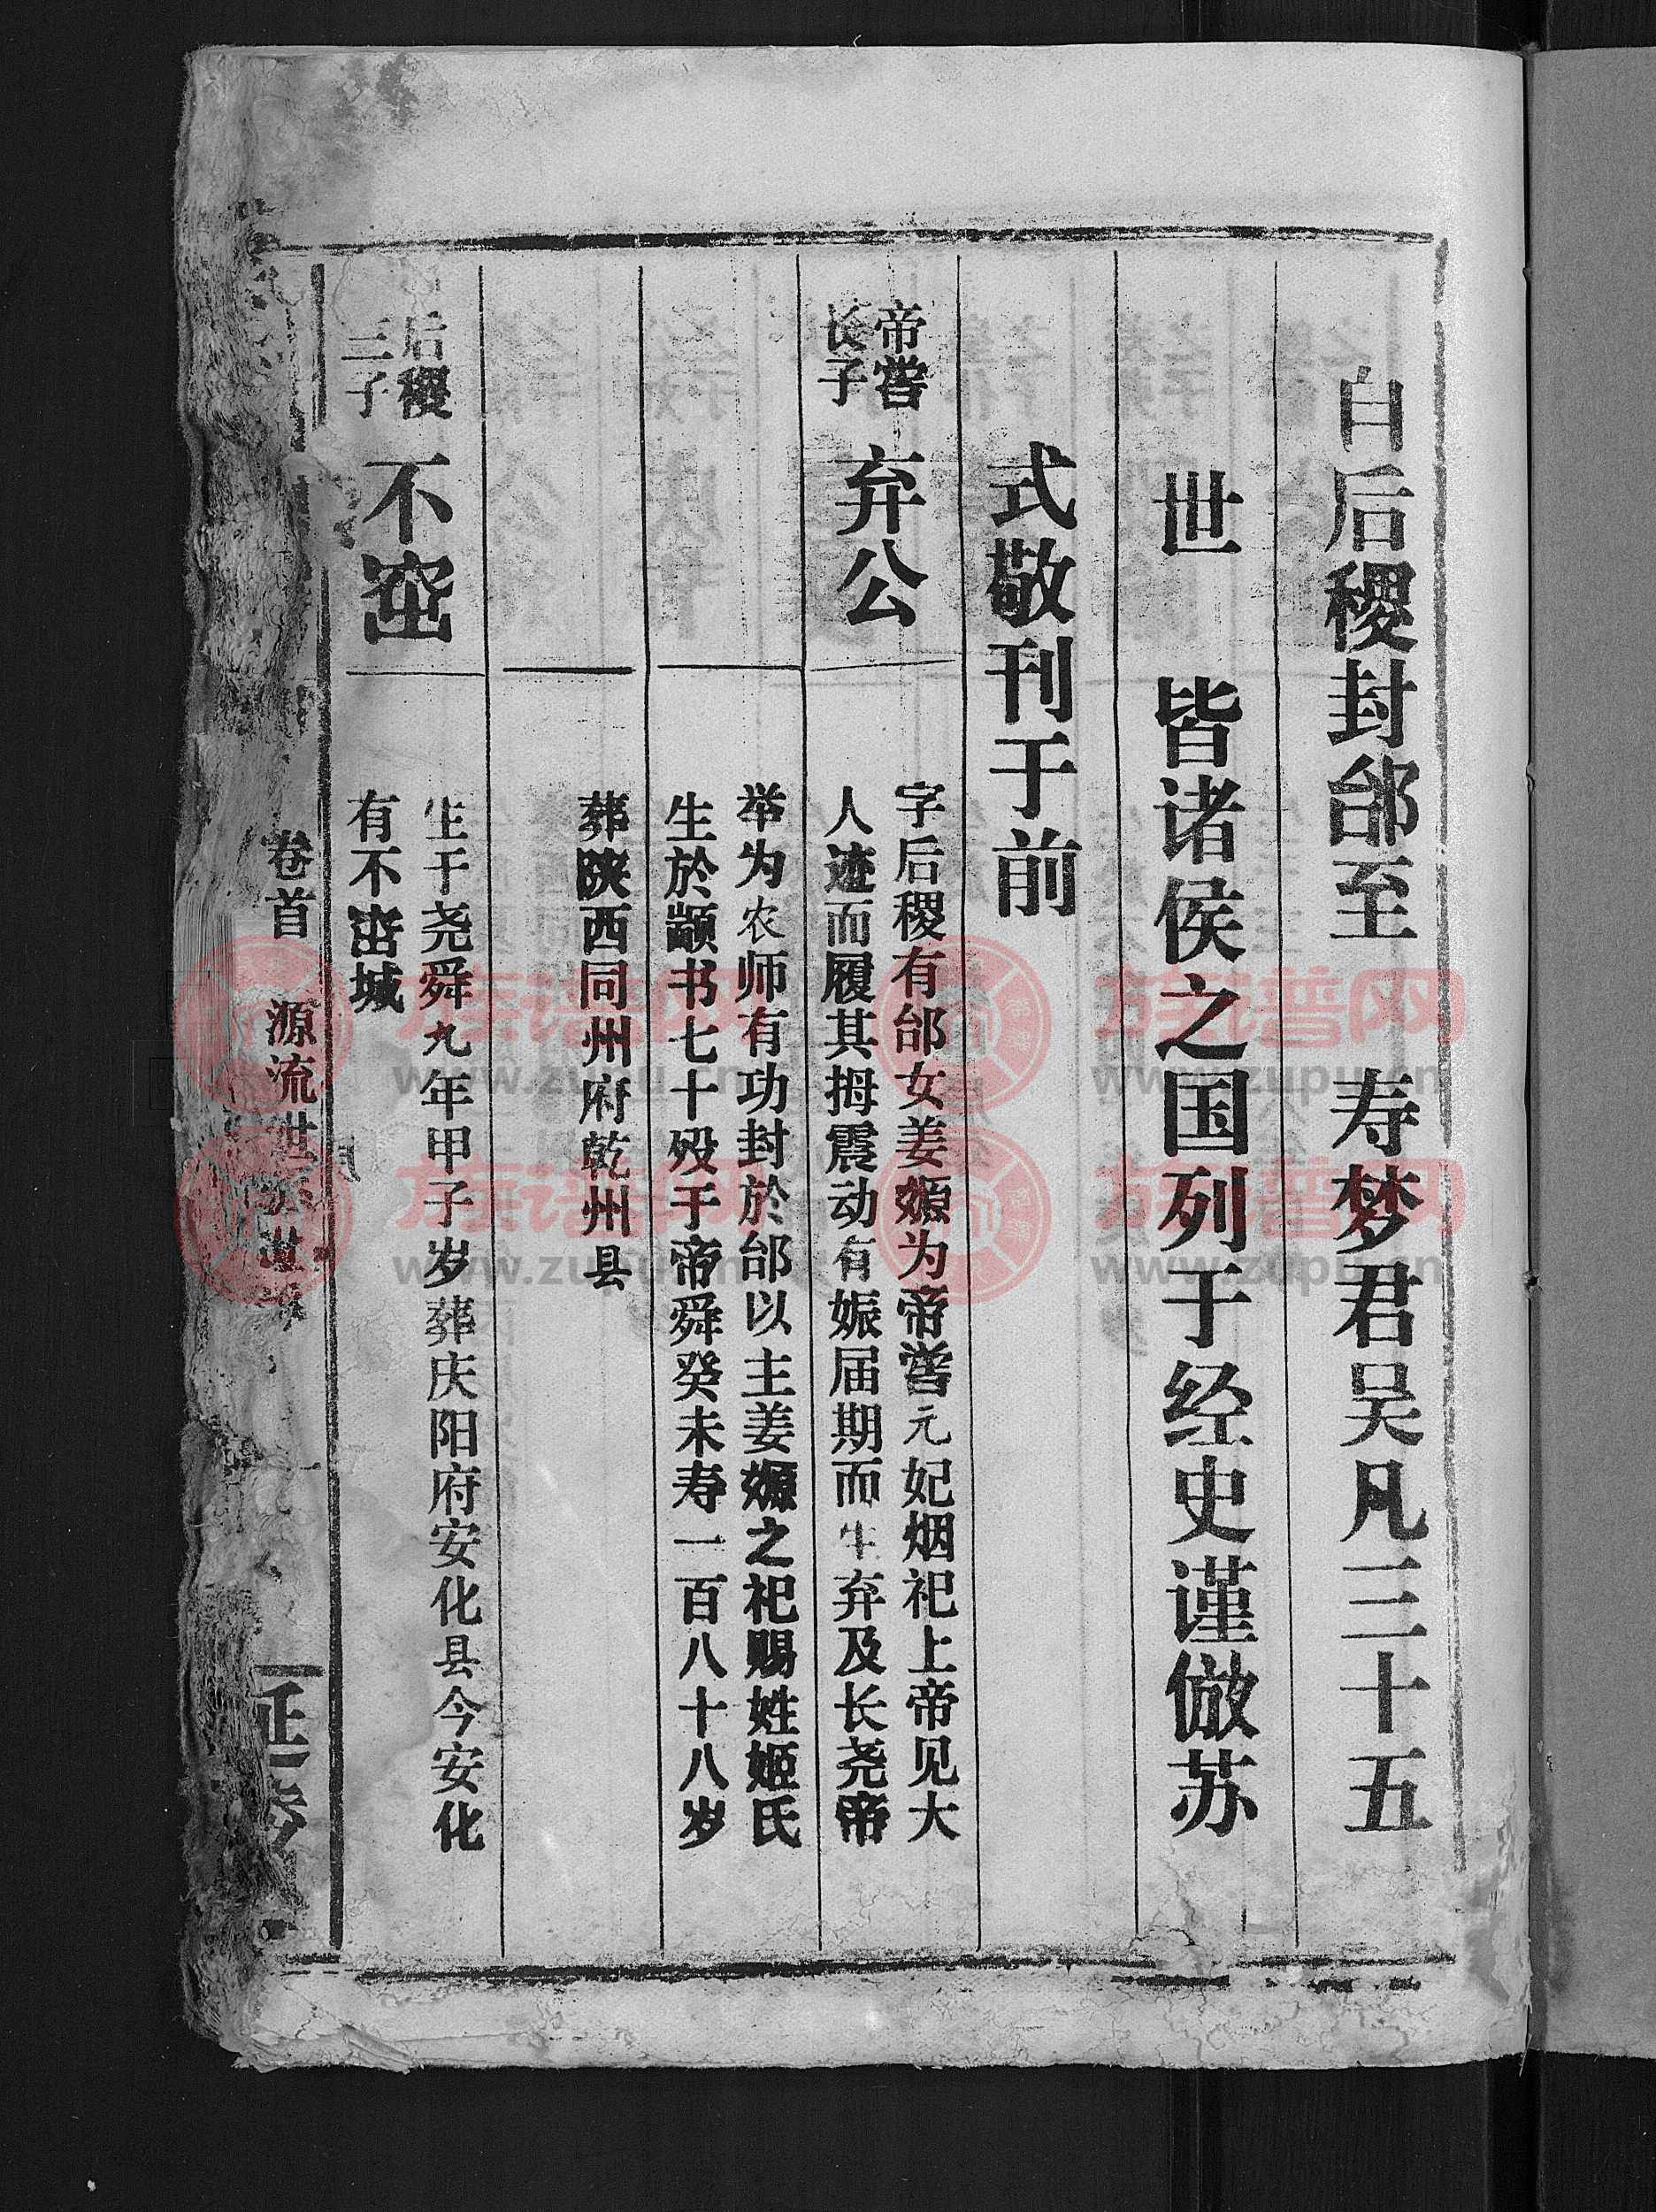 自后稷封邰至 寿梦君吴凡三十五
世 皆诸侯之国列于经史谨倣苏
式敬刊于前
帝喾
长子
弃公
字后稷有邰女姜嫄为帝喾元妃烟祀上帝见大
人迹而履其拇震动有娠届期而生弃及长尧帝
举为农师有功封於邰以主姜嫄之祀赐姓姬氏
生於颛书七十殁于帝舜癸未寿一百八十八岁
葬陕西同州府乾州县
后稷
三子
不窋
生于尧舜九年甲子岁葬庆阳府安化县今安化
有不窋城
卷首 源流世系
族谱网
www.zupu.cn
族谱网
www.zupu.cn
族谱网
www.zupu.cn
族谱网
www.zupu.cn